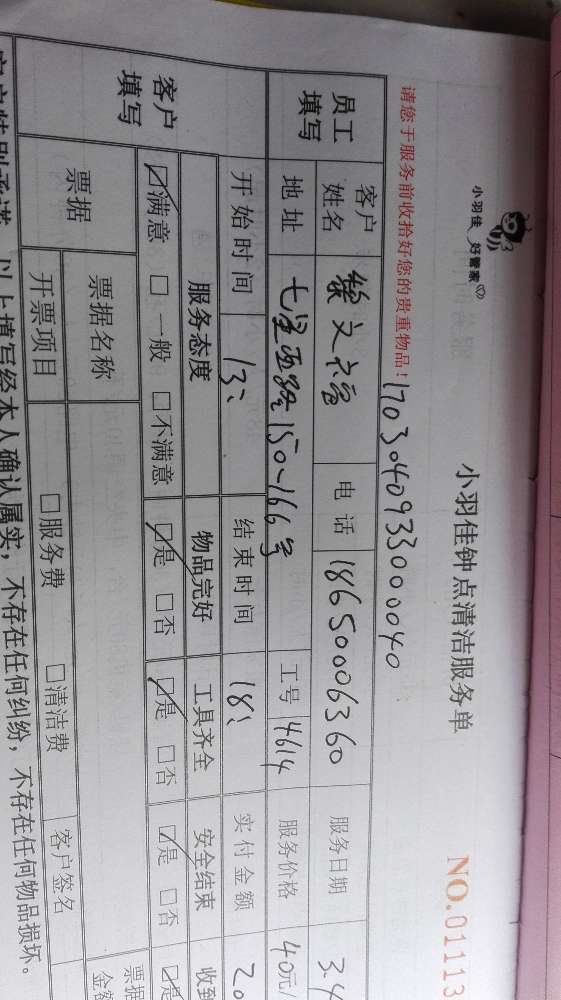 小羽佳 好管家
小羽佳钟点清洁服务单
NO.01113
请您于服务前收拾好您的贵重物品！
1703040933000040
员工填写
客户姓名
文福
电话
18650006360
服务日期
3.4
地址
七星西路150-166号
工号
4614
服务价格
40元/
开始时间
13:
结束时间
18:
实付金额
20
客户填写
服务态度
物品完好
工具齐全
安全结束
收到
☑满意 □一般 □不满意
☑是 □否
☑是 □否
☑是 □否
☑是
票据
票据名称
票据金额
开票项目
□服务费 □清洁费
客户签名
客户特别承诺，以上填写经本人确认属实，不存在任何纠纷，不存在任何物品损坏。